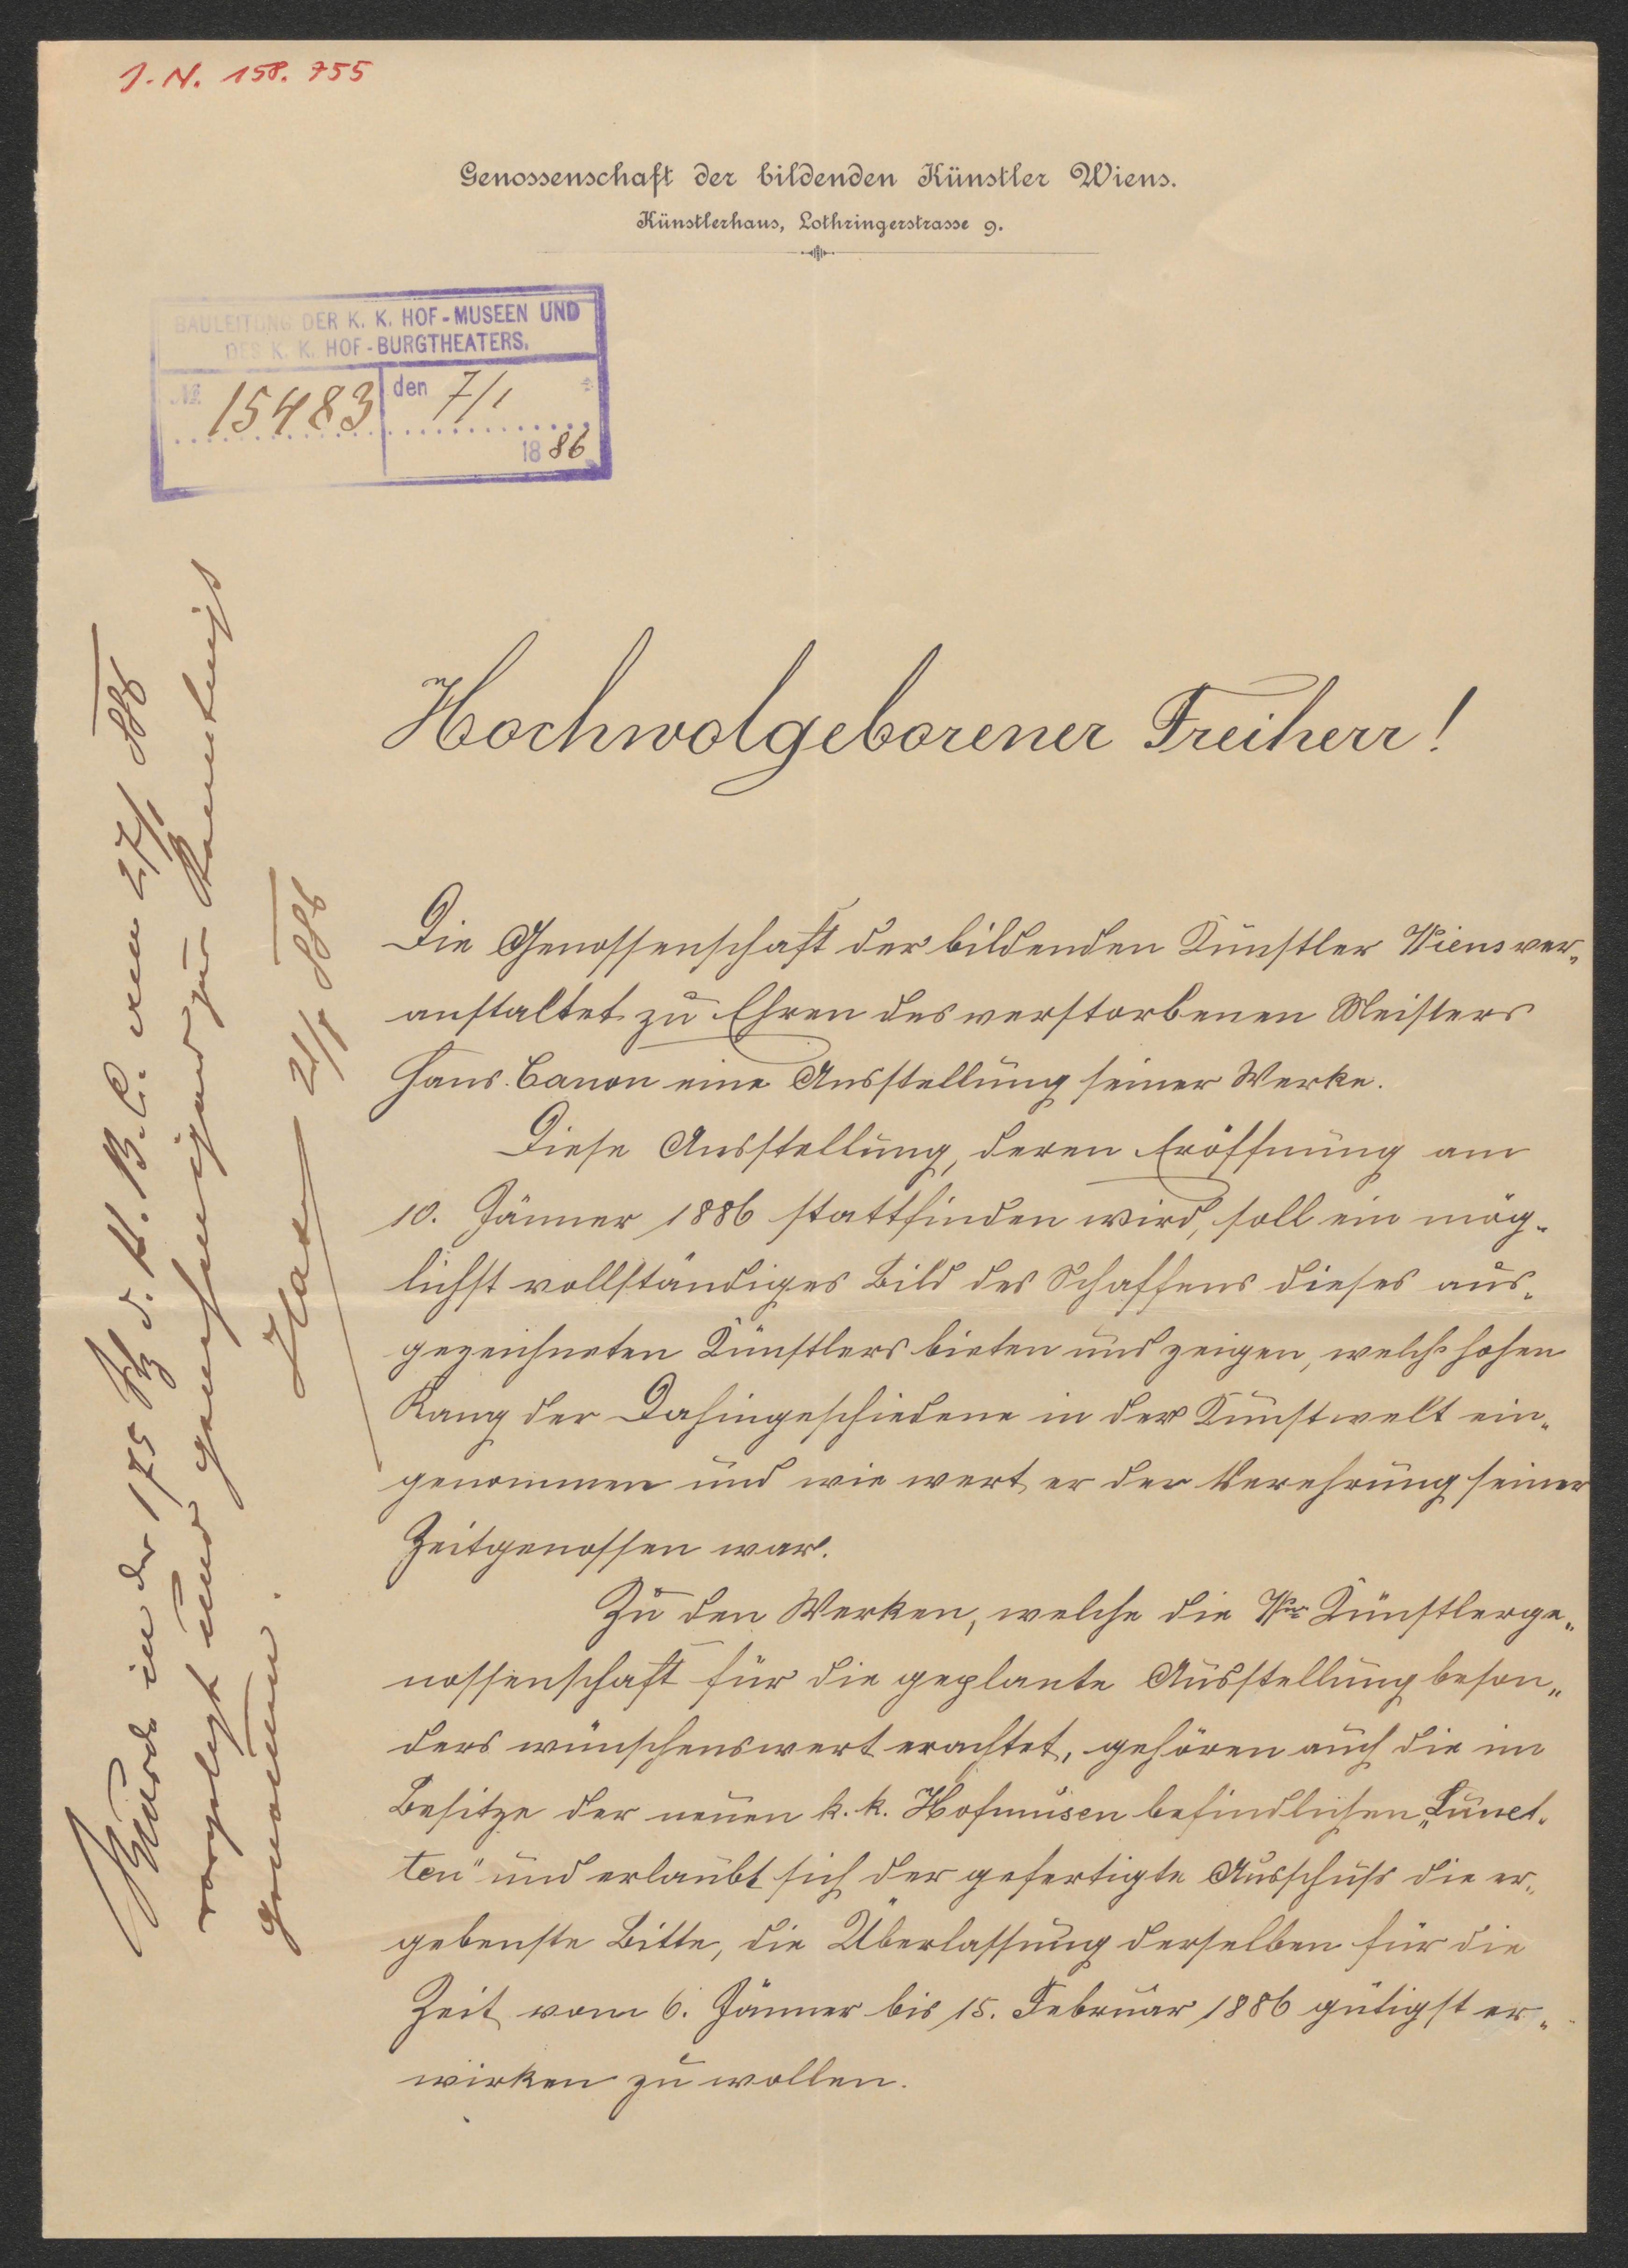 J. N. 158.755
Genossenschaft der bildenden Künstler Wiens.
Künstlerhaus, Lothringerstrasse 9.
BAULEITUNG DER K. K. HOF-MUSEEN UND
DES K. K. HOF-BURGTHEATERS.
№ 15483 den 7/1
1886
Hochwolgeborener Freiherr!
Die Genossenschaft der bildenden Künstler Wiens ver„
anstaltet zu Ehren des verstorbenen Meisters
Hans Canon eine Ausstellung seiner Werke.
Diese Ausstellung, deren Eröffnung am
10. Jänner 1886 stattfinden wird, soll ein mög„
lichst vollständiges Bild des Schaffens dieses aus„
gezeichneten Künstlers bieten und zeigen, welch' hohen
Rang der Dahingeschiedene in der Kunstwelt ein„
genommen und wie wert er der Verehrung seiner
Zeitgenossen war.
Zu den Werken, welche die Künstlerge„
nossenschaft für die geplante Ausstellung beson„
ders wünschenswert erachtet, gehören auch die im
Besitze der neuen k. k. Hofmuseen befindlichen „Lunet„
ten" und erlaubt sich der gefertigte Ausschuß die er„
gebenste Bitte, die Überlassung derselben für die
Zeit vom 6. Jänner bis 15. Februar 1886 gütigst er„
wirken zu wollen.
Wurde in der 175 d. H. B. C. vom 27/1 886
vorgelegt und genehmigend zur Kenntniß
genommen.
21/1 886